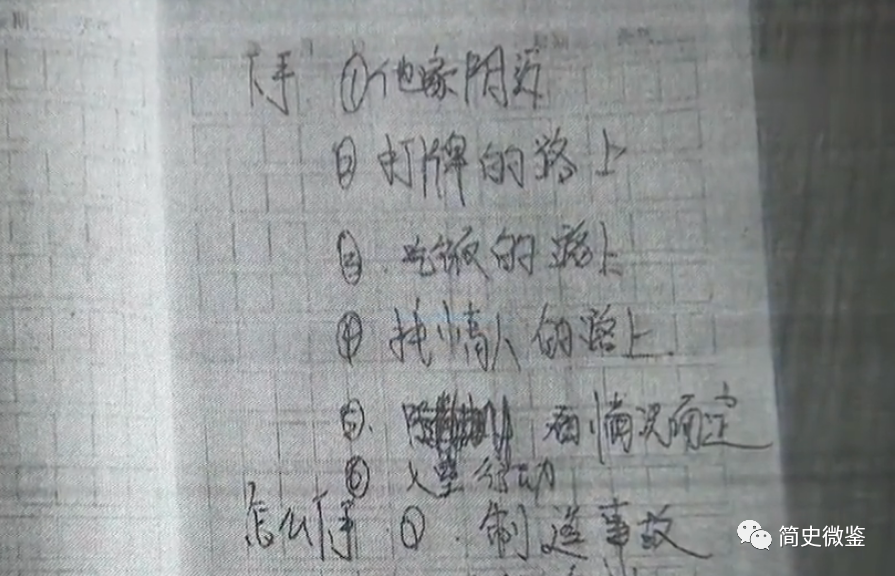 下手 ①他家附近
② 打牌的路上
③ 吃饭的路上
④ 找情人的路上.
⑤. 看情况而定
⑥ 入室行动
怎么下手 ①. 制造事故
简史微鉴